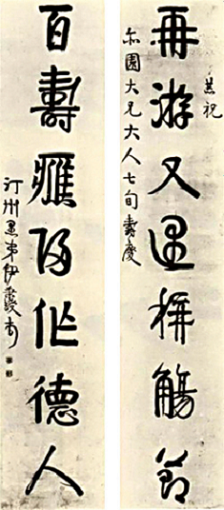 恭祝
再游又遇稱觴節
尒園大兄大人七旬壽慶
百壽應歸作德人
汀州愚弟伊秉綬